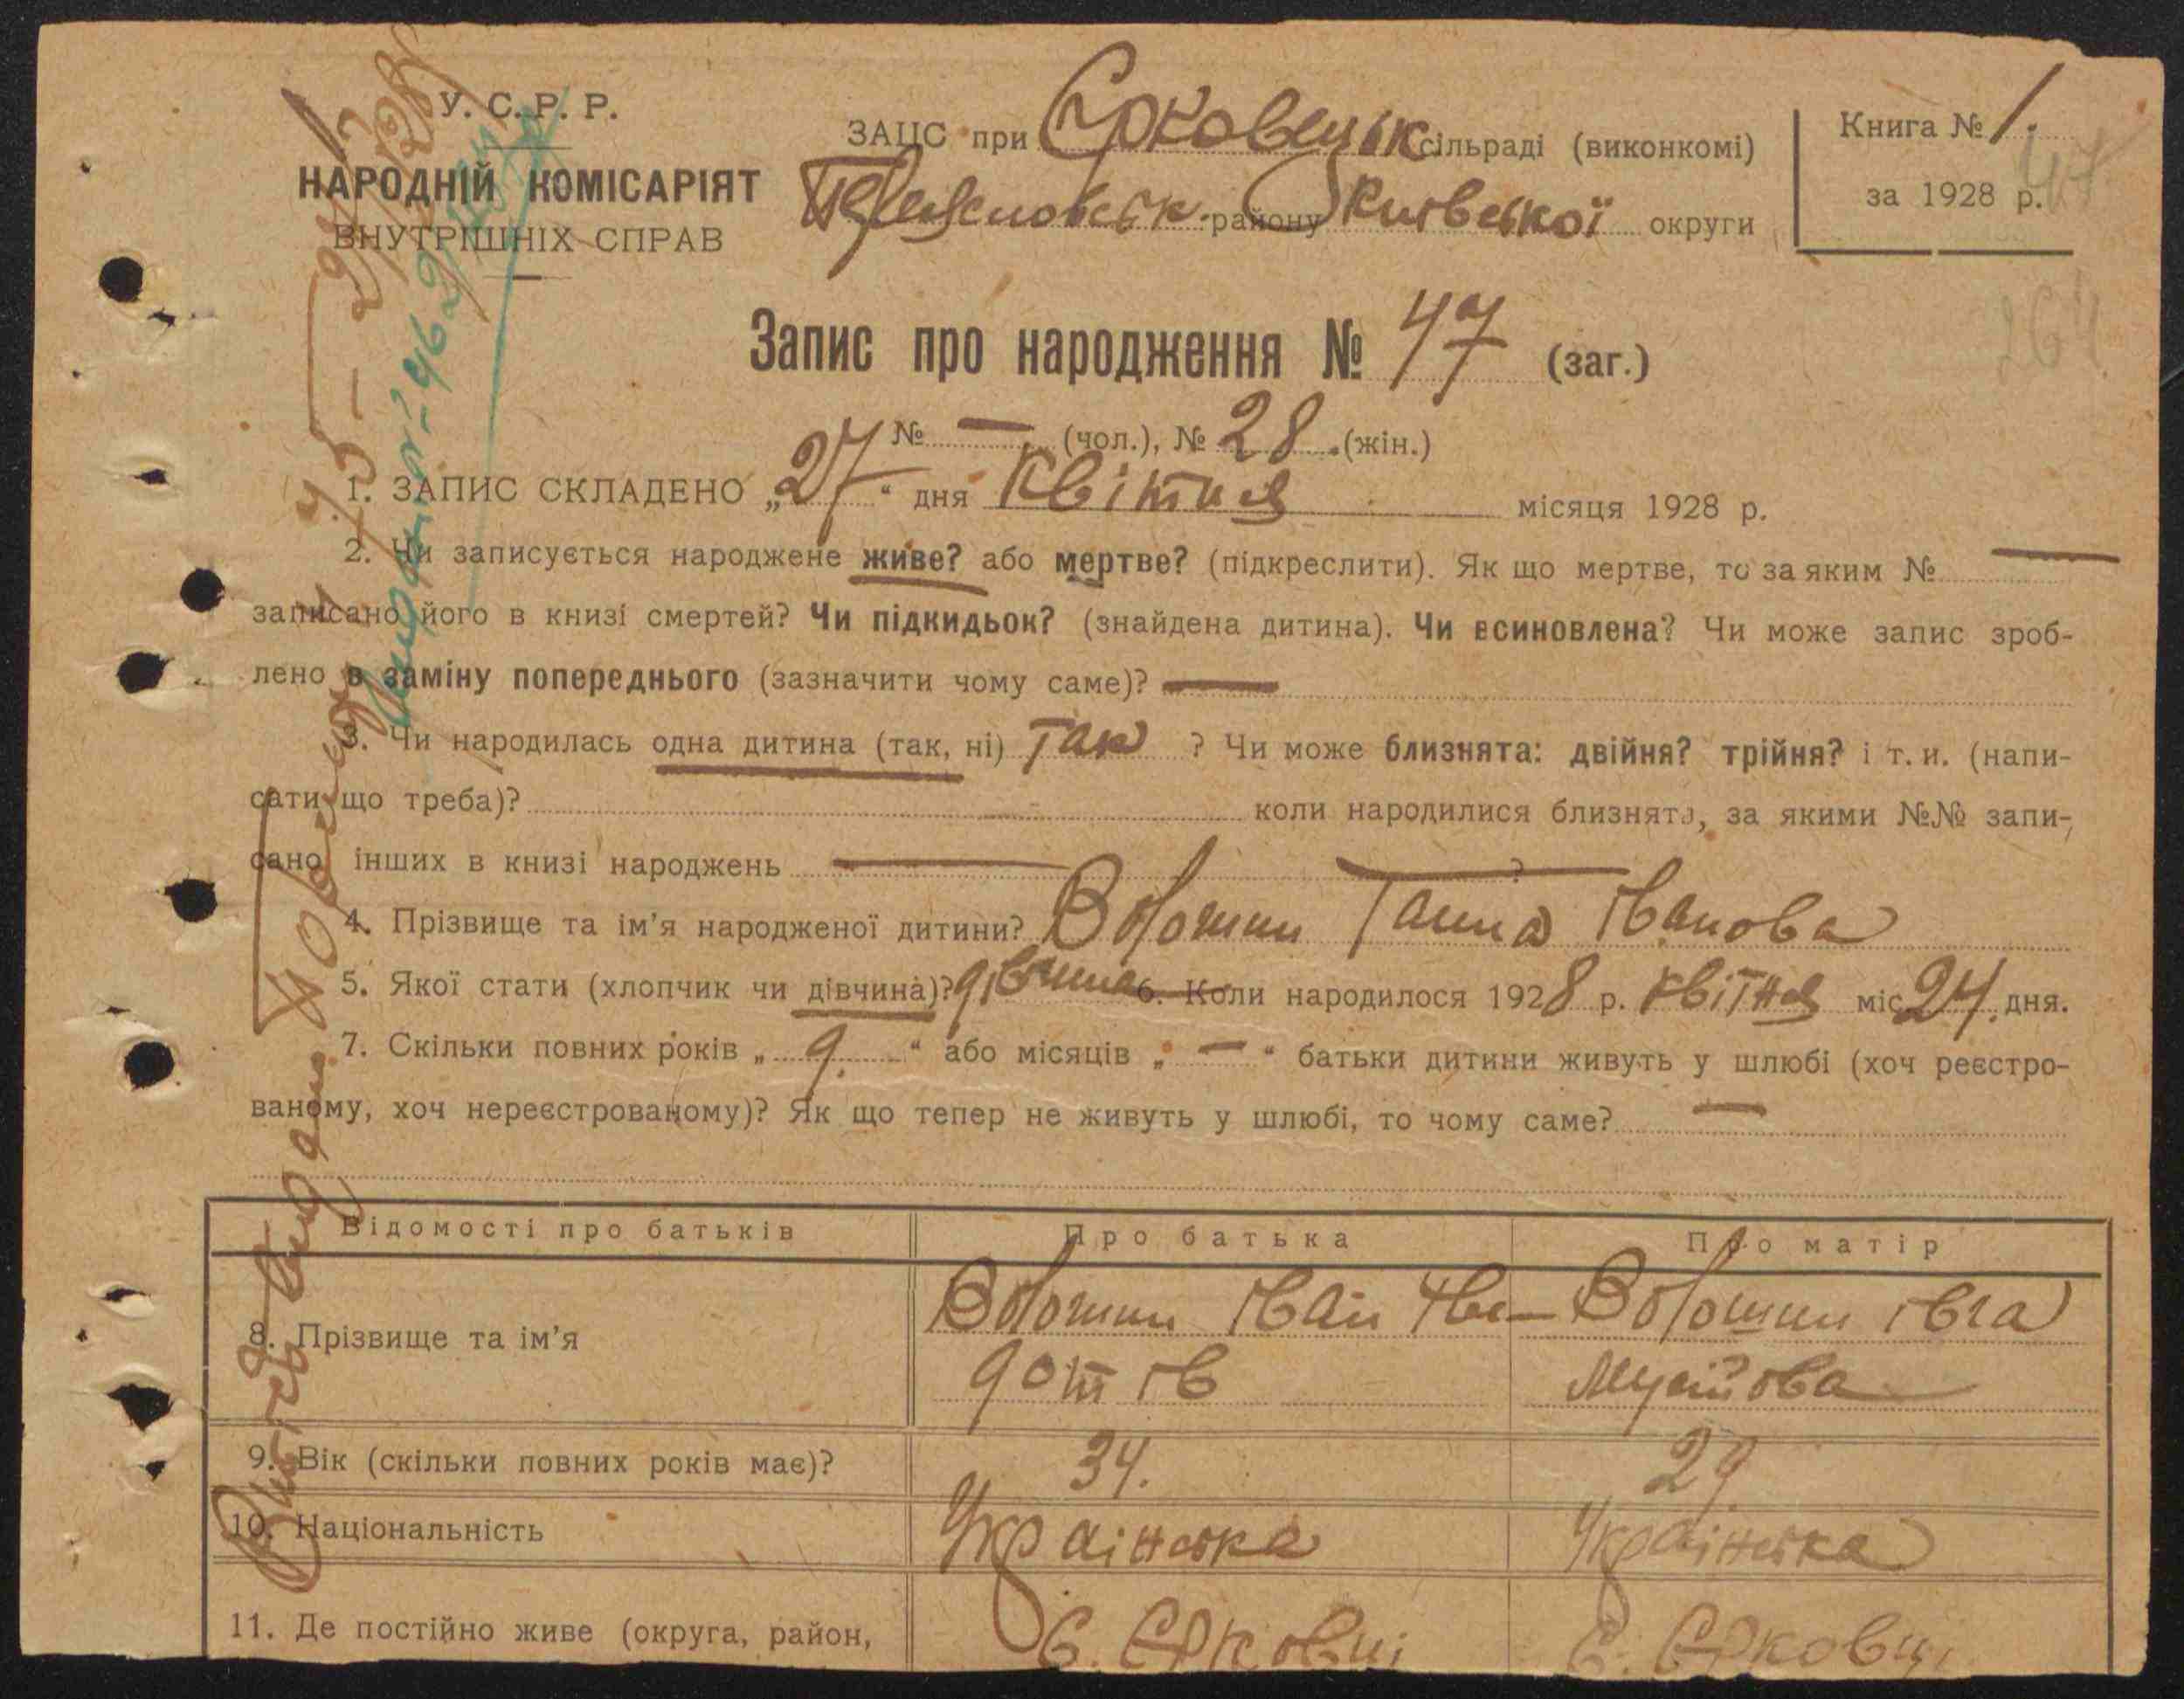 У. С. Р. Р.
НАРОДНІЙ КОМІСАРІЯТ
ВНУТРІШНІХ СПРАВ
ЗАЦС при Єрковецьк сільраді (виконкомі)
району Київської округи
Книга № 1.
за 1928 р.
47
264
Запис про народження № 47 (заг.)
№ — (чол.), № 28 (жін.)
1. ЗАПИС СКЛАДЕНО „27“ дня Квітня місяця 1928 р.
2. Чи записується народжене живе? або мертве? (підкреслити). Як що мертве, то за яким № —
записано його в книзі смертей? Чи підкидьок? (знайдена дитина). Чи всиновлена? Чи може запис зроб-
лено в заміну попереднього (зазначити чому саме)? —
3. Чи народилась одна дитина (так, ні) Так ? Чи може близнята: двійня? трійня? і т. и. (напи-
сати що треба)? коли народилися близнята, за якими №№ запи-
сано інших в книзі народжень — ?
4. Прізвище та ім’я народженої дитини? Волошин Ганна Іванова
5. Якої стати (хлопчик чи дівчина)? дівчина 6. Коли народилося 1928 р. квітня міс. 24. дня.
7. Скільки повних років „ 9. “ або місяців „ — “ батьки дитини живуть у шлюбі (хоч реєстро-
ваному, хоч нереєстрованому)? Як що тепер не живуть у шлюбі, то чому саме? —
Відомості про батьків Про батька Про матір
8. Прізвище та ім’я Волошин Іван Волошин Івга
Мусіїова
9. Вік (скільки повних років має)? 34. 29
10. Національність Українська Українська
11. Де постійно живе (округа, район, с. Єрковці с. Єрковці